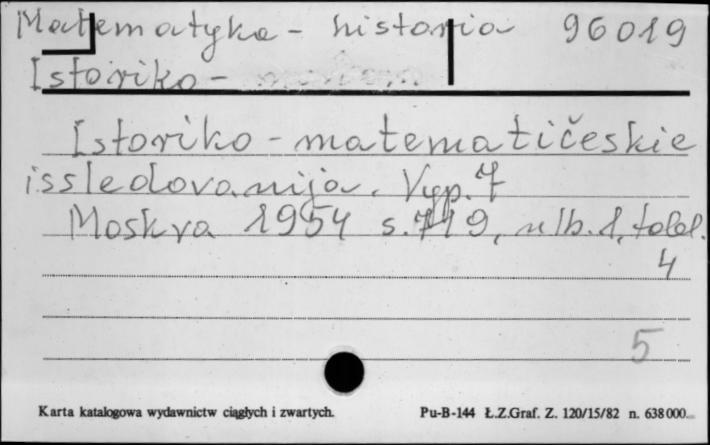 Matematyka - historia 96019
Istoriko -
Istoriko - matematičeskie
issledovanija. Vyp. 7
Moskva 1954 s. 719, nlb. 1, tabl.
4
5
Karta katalogowa wydawnictw ciągłych i zwartych. Pu-B-144 Ł.Z.Graf. Z. 120/15/82 n. 638000.